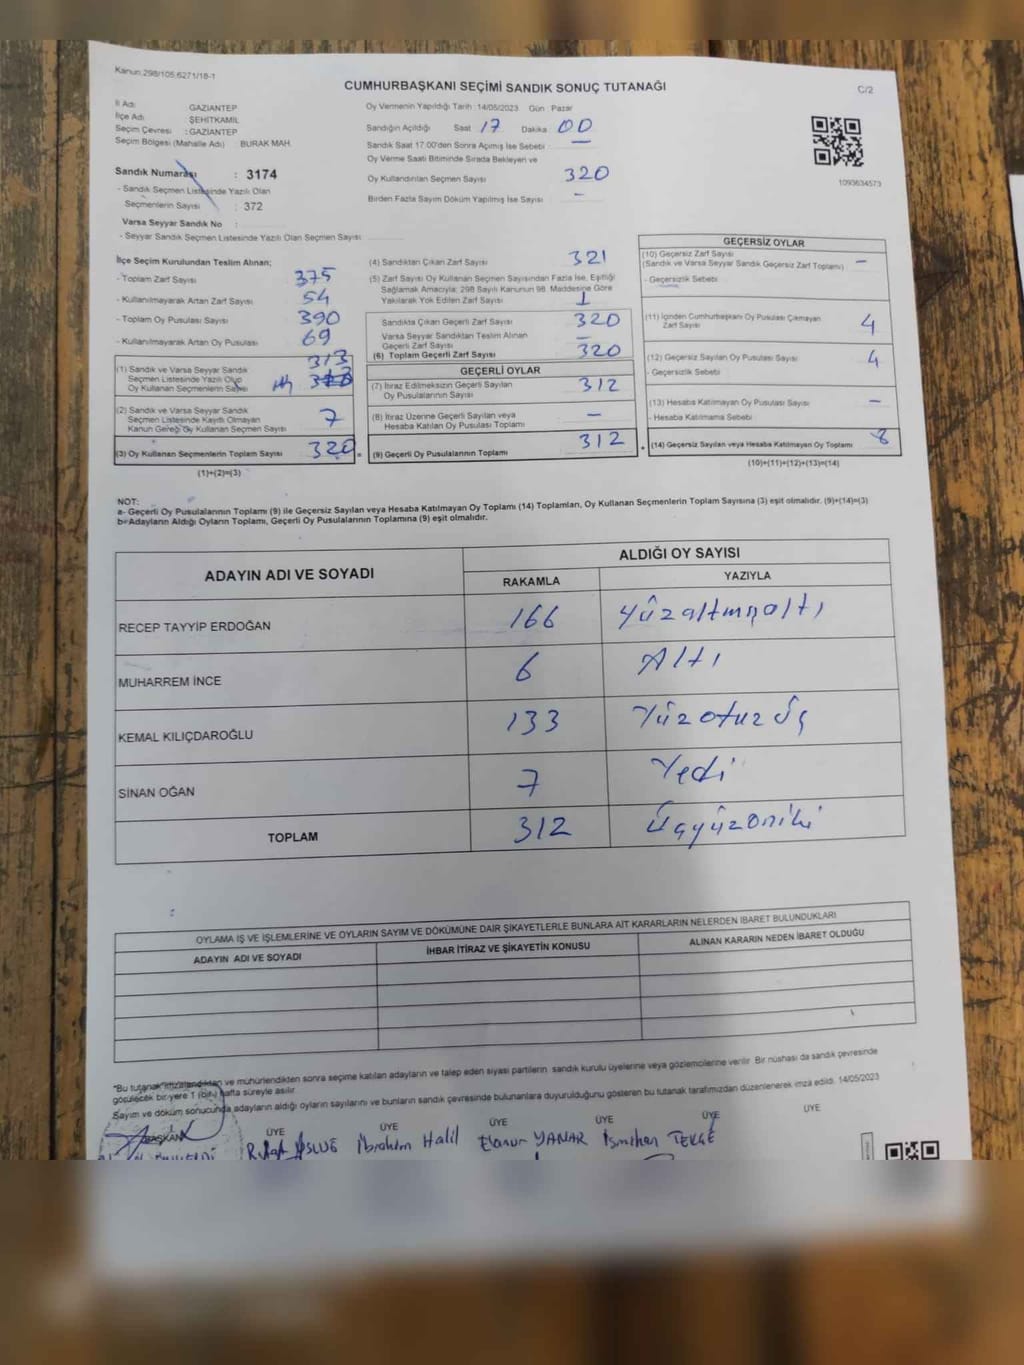 Kanun:298/105,6271/18-1
CUMHURBAŞKANI SEÇİMİ SANDIK SONUÇ TUTANAĞI
C/2
İl Adı : GAZİANTEP
İlçe Adı : ŞEHİTKAMİL
Seçim Çevresi : GAZİANTEP
Seçim Bölgesi (Mahalle Adı) : BURAK MAH.
Sandık Numarası : 3174
- Sandık Seçmen Listesinde Yazılı Olan
Seçmenlerin Sayısı : 372
Varsa Seyyar Sandık No :
- Seyyar Sandık Seçmen Listesinde Yazılı Olan Seçmen Sayısı
Oy Vermenin Yapıldığı Tarih : 14/05/2023 Gün : Pazar
Sandığın Açıldığı Saat 17 Dakika 00
Sandık Saat 17:00'den Sonra Açımış İse Sebebi —
Oy Verme Saati Bitiminde Sırada Bekleyen ve
Oy Kullandırılan Seçmen Sayısı 320
Birden Fazla Sayım Döküm Yapılmış İse Sayısı -
1093634573
İlçe Seçim Kurulundan Teslim Alınan;
- Toplam Zarf Sayısı 375
- Kullanılmayarak Artan Zarf Sayısı 54
- Toplam Oy Pusulası Sayısı 390
- Kullanılmayarak Artan Oy Pusulası 69
(1) Sandık ve Varsa Seyyar Sandık 313
Seçmen Listesinde Yazılı Olup
Oy Kullanan Seçmenlerin Sayısı
(2) Sandık ve Varsa Seyyar Sandık
Seçmen Listesinde Kayıtlı Olmayan 7
Kanun Gereği Oy Kullanan Seçmen Sayısı
(3) Oy Kullanan Seçmenlerin Toplam Sayısı 320
(1)+(2)=(3)
(4) Sandıktan Çıkan Zarf Sayısı 321
(5) Zarf Sayısı Oy Kullanan Seçmen Sayısından Fazla İse, Eşitliği
Sağlamak Amacıyla; 298 Sayılı Kanunun 98. Maddesine Göre
Yakılarak Yok Edilen Zarf Sayısı 1
Sandıkta Çıkan Geçerli Zarf Sayısı 320
Varsa Seyyar Sandıktan Teslim Alınan
Geçerli Zarf Sayısı —
(6) Toplam Geçerli Zarf Sayısı 320
GEÇERLİ OYLAR
(7) İtiraz Edilmeksizin Geçerli Sayılan 312
Oy Pusulalarının Sayısı
(8) İtiraz Üzerine Geçerli Sayılan veya —
Hesaba Katılan Oy Pusulası Toplamı
(9) Geçerli Oy Pusulalarının Toplamı 312
GEÇERSİZ OYLAR
(10) Geçersiz Zarf Sayısı
(Sandık ve Varsa Seyyar Sandık Geçersiz Zarf Toplamı) —
- Geçersizlik Sebebi
(11) İçinden Cumhurbaşkanı Oy Pusulası Çıkmayan 4
Zarf Sayısı
(12) Geçersiz Sayılan Oy Pusulası Sayısı 4
- Geçersizlik Sebebi
(13) Hesaba Katılmayan Oy Pusulası Sayısı —
- Hesaba Katılmama Sebebi
(14) Geçersiz Sayılan veya Hesaba Katılmayan Oy Toplamı 8
(10)+(11)+(12)+(13)=(14)
NOT:
a- Geçerli Oy Pusulalarının Toplamı (9) ile Geçersiz Sayılan veya Hesaba Katılmayan Oy Toplamı (14) Toplamları, Oy Kullanan Seçmenlerin Toplam Sayısına (3) eşit olmalıdır. (9)+(14)=(3)
b- Adayların Aldığı Oyların Toplamı, Geçerli Oy Pusulalarının Toplamına (9) eşit olmalıdır.
ADAYIN ADI VE SOYADI
ALDIĞI OY SAYISI
RAKAMLA YAZIYLA
RECEP TAYYİP ERDOĞAN 166 Yüzaltmışaltı
MUHARREM İNCE 6 Altı
KEMAL KILIÇDAROĞLU 133 Yüzotuz üç
SİNAN OĞAN 7 Yedi
TOPLAM 312 Üçyüzoniki
OYLAMA İŞ VE İŞLEMLERİNE VE OYLARIN SAYIM VE DÖKÜMÜNE DAİR ŞİKAYETLERLE BUNLARA AİT KARARLARIN NELERDEN İBARET BULUNDUKLARI
ADAYIN ADI VE SOYADI
İHBAR İTİRAZ VE ŞİKAYETİN KONUSU
ALINAN KARARIN NEDEN İBARET OLDUĞU
"Bu tutanak imzalandıktan ve mühürlendikten sonra seçime katılan adayların ve talep eden siyasi partilerin sandık kurulu üyelerine veya gözlemcilerine verilir. Bir nüshası da sandık çevresinde
görülecek bir yere 1 (bir) hafta süreyle asılır.
Sayım ve döküm sonucunda adayların aldığı oyların sayılarını ve bunların sandık çevresinde bulunanlara duyurulduğunu gösteren bu tutanak tarafımızdan düzenlenerek imza edildi. 14/05/2023
BAŞKAN ÜYE ÜYE ÜYE ÜYE ÜYE ÜYE
İbrahim Halil YANAR